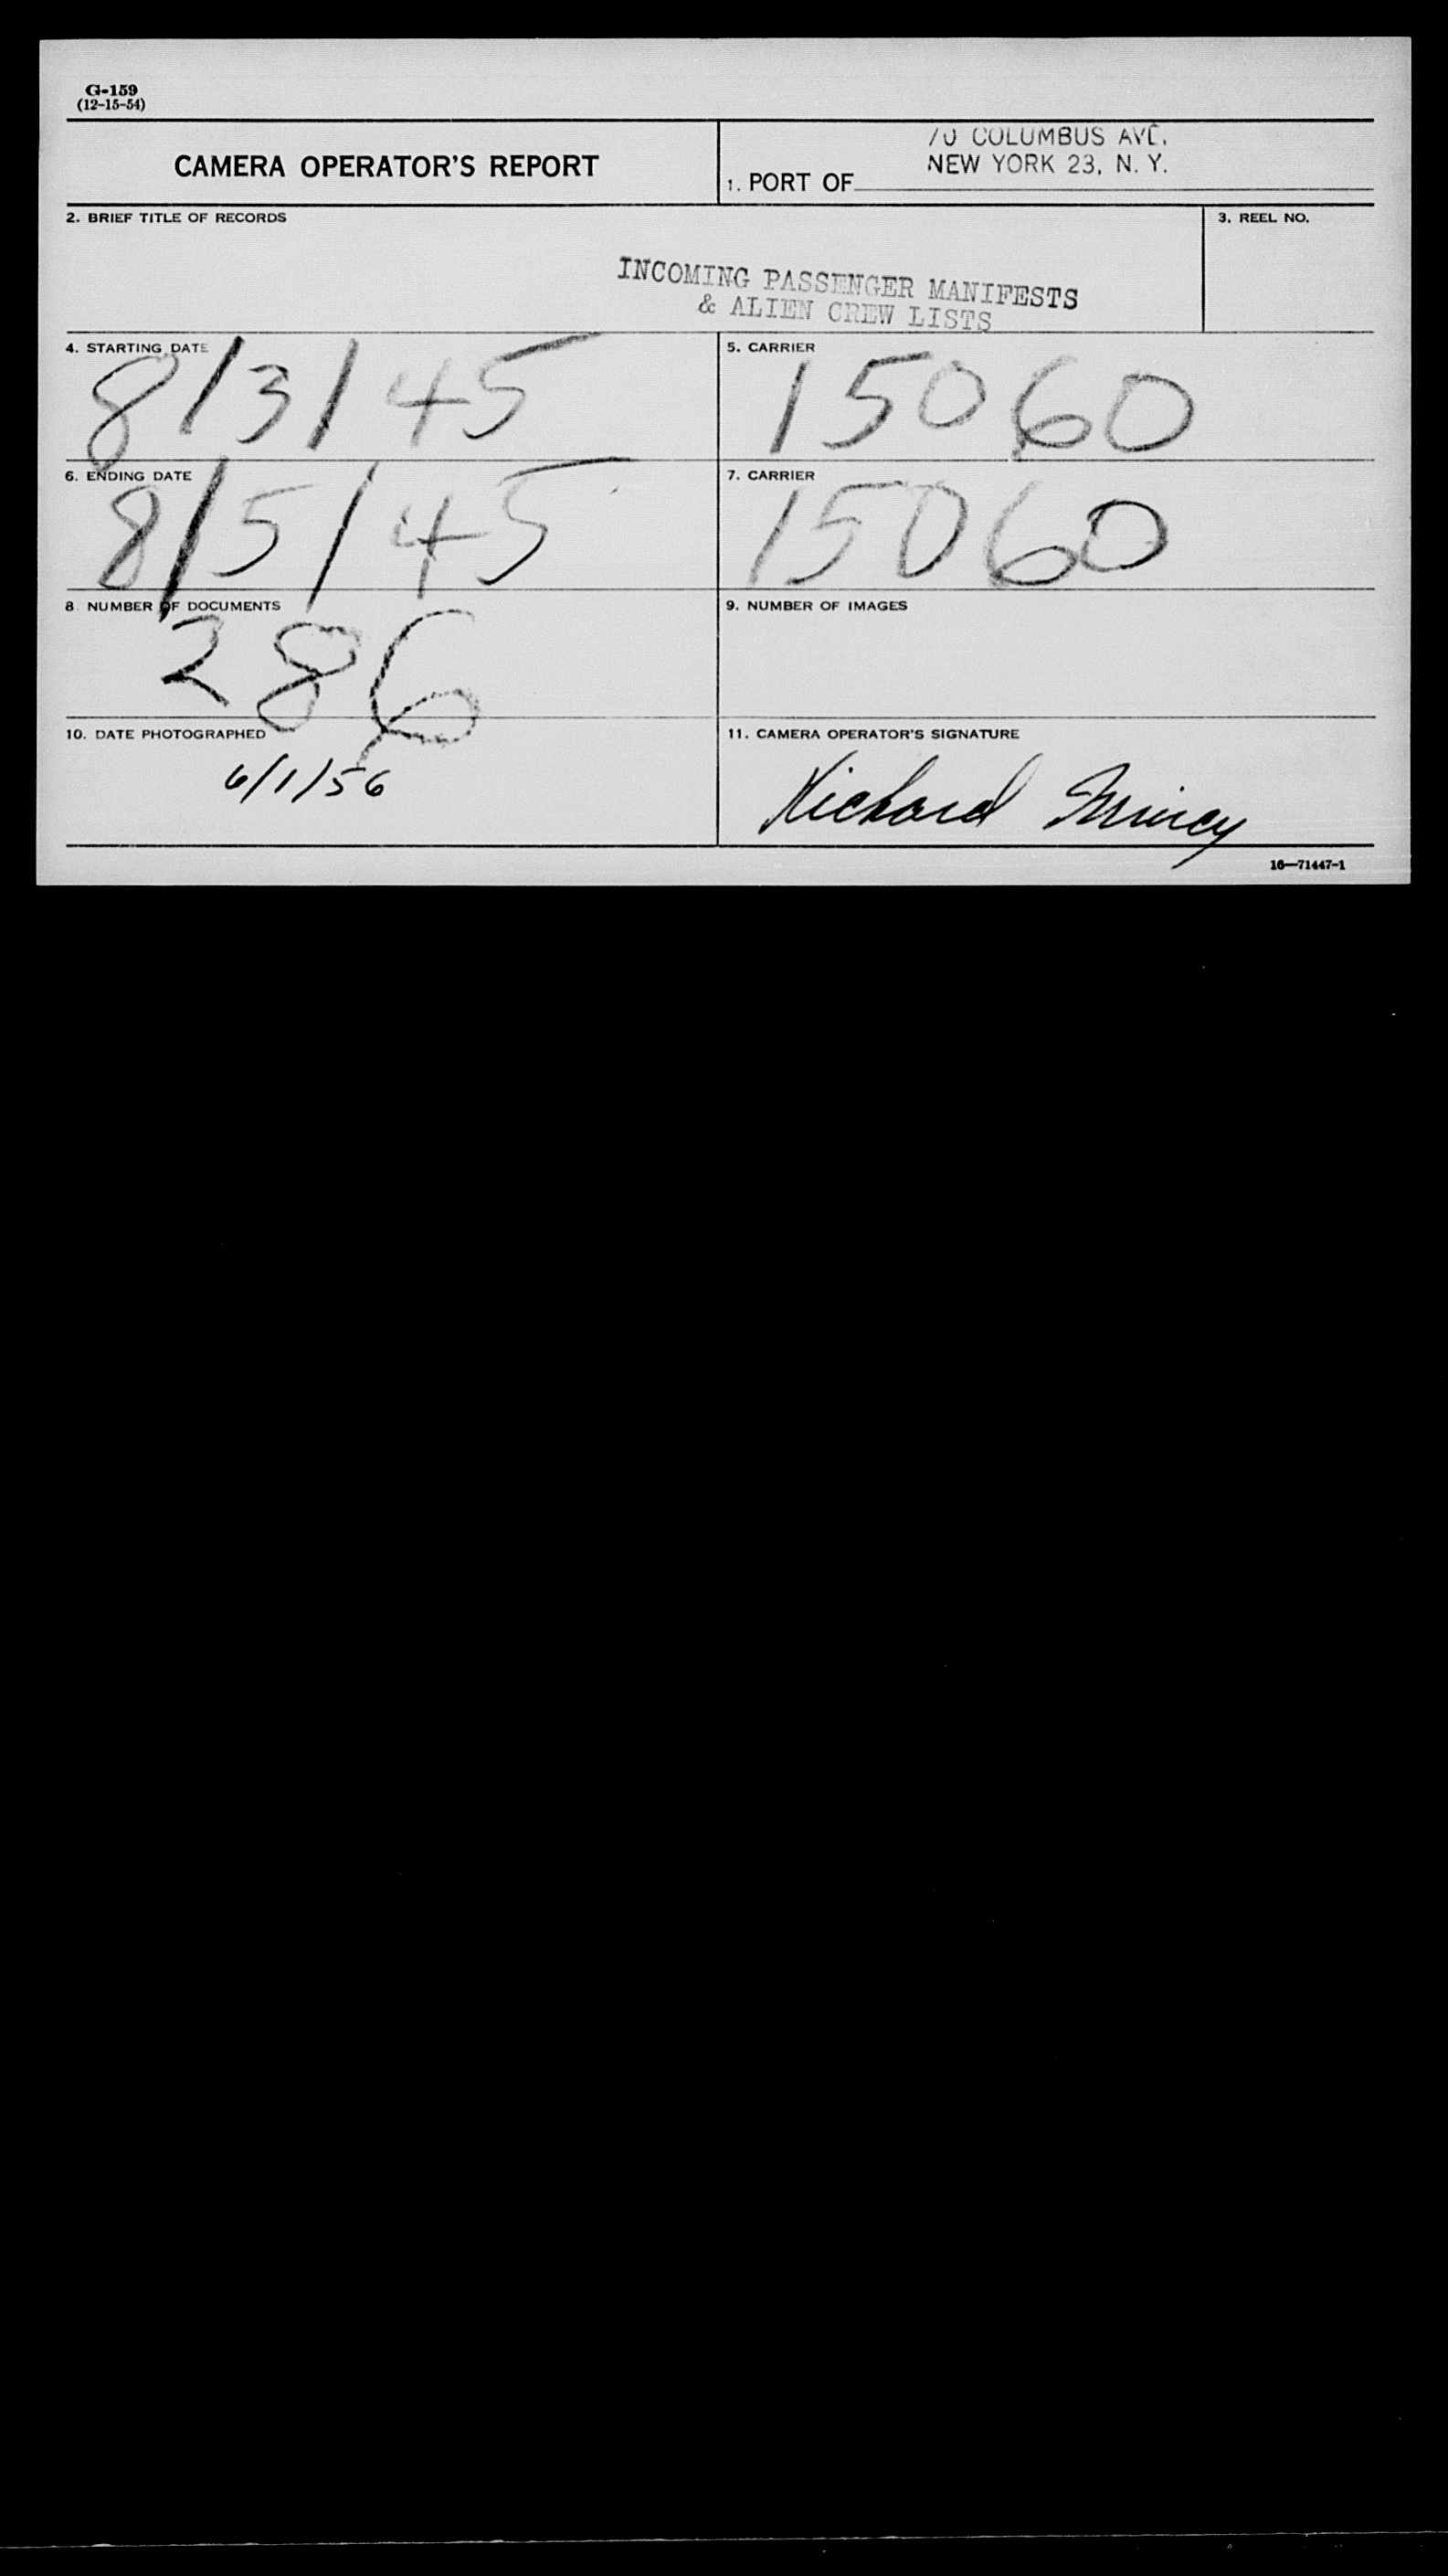 G-159
(12-15-54)
CAMERA OPERATOR'S REPORT
70 COLUMBUS AVE.
NEW YORK 23, N. Y.
1. PORT OF
2. BRIEF TITLE OF RECORDS
3. REEL NO.
INCOMING PASSENGER MANIFESTS
& ALIEN CREW LISTS
4. STARTING DATE
8/3/45
5. CARRIER
15060
6. ENDING DATE
8/5/45
7. CARRIER
15060
8 NUMBER OF DOCUMENTS
286
9. NUMBER OF IMAGES
10. DATE PHOTOGRAPHED
6/1/56
11. CAMERA OPERATOR'S SIGNATURE
Richard
16—71447-1